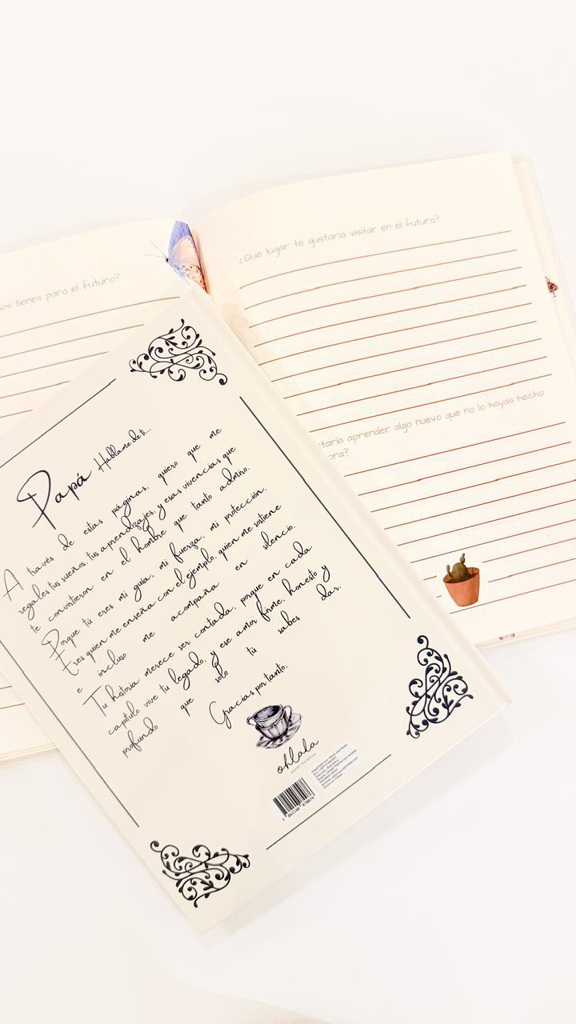 os tienes para el futuro?
¿Qué lugar te gustaría visitar en el futuro?
taría aprender algo nuevo que no lo hayas hecho
ora?
Papá Háblame de ti...
A través de estas páginas, quiero que me
regales tus sueños, tus aprendizajes, y esas vivencias que
te convirtieron en el hombre que tanto admiro.
Porque tú eres mi guía, mi fuerza, mi protección.
Eres quien me enseña con el ejemplo, quien me sostiene
e incluso me acompaña en silencio.
Tu historia merece ser contada, porque en cada
capítulo vive tu legado, y ese amor firme, honesto y
profundo que solo tú sabes dar.
Gracias por tanto.
ohlala